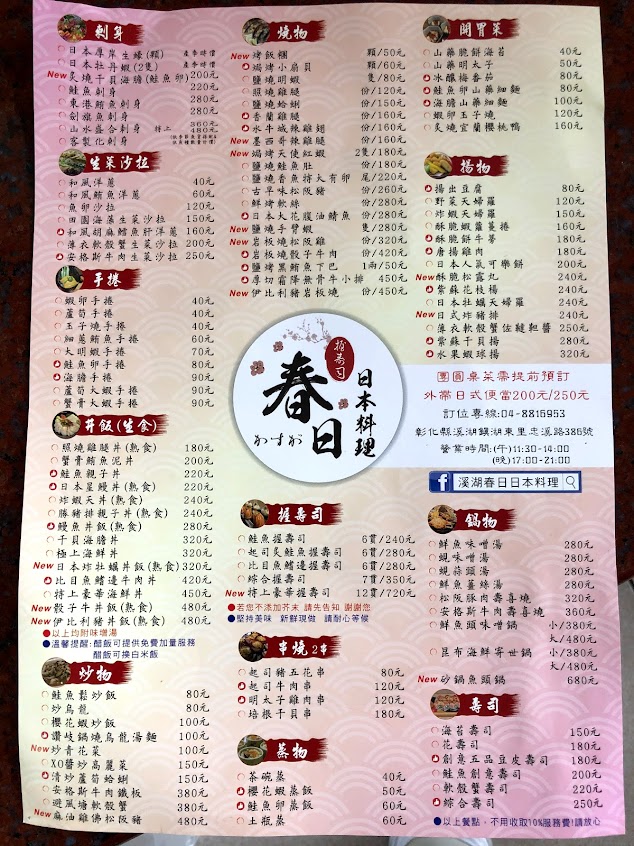 刺身
日本厚岸生蠔(顆) 產季時價
日本牡丹蝦(2隻) 產季時價
New 炙燒干貝海膽(鮭魚卵) 200元
鮭魚刺身 220元
東港鮪魚刺身 280元
劍旗魚刺身 280元
山水盛合刺身 360元
特上 480元
客製化刺身
生菜沙拉
和風洋蔥 40元
和風鮪魚洋蔥 60元
魚卵沙拉 120元
田園海藻生菜沙拉 150元
和風胡麻鱈魚肝洋蔥 160元
薄衣軟殼蟹生菜沙拉 200元
安格斯牛肉生菜沙拉 250元
手捲
蝦卵手捲 40元
蘆筍手捲 40元
玉子燒手捲 40元
細蔥鮪魚手捲 60元
大明蝦手捲 70元
鮭魚卵手捲 80元
海膽手捲 90元
蘆筍大蝦手捲 90元
蟹膏大蝦手捲 90元
丼飯(生食)
照燒雞腿丼(熟食) 180元
蟹膏鮪魚泥丼 200元
鮭魚親子丼 220元
日本星鰻丼(熟食) 220元
炸蝦天丼(熟食) 240元
勝豬排親子丼(熟食) 240元
鰻魚丼飯(熟食) 280元
干貝海膽丼 320元
極上海鮮丼 320元
New 日本炸牡蠣丼飯(熟食) 320元
比目魚鰭邊牛肉丼 420元
特上豪華海鮮丼 450元
New 骰子牛丼飯(熟食) 480元
New 伊比利豬丼飯(熟食) 480元
●以上均附味增湯
●溫馨提醒:醋飯可提供免費加量服務
醋飯可換白米飯
炒物
鮭魚鬆炒飯 80元
炒烏龍 80元
櫻花蝦炒飯 100元
讚岐鍋燒烏龍湯麵 100元
New 炒青花菜 100元
XO醬炒高麗菜 150元
清炒蘆筍蛤蜊 150元
安格斯牛肉鐵板 380元
避風塘軟殼蟹 380元
New 麻油雞佛松阪豬 380元
燒物
New 烤飯糰 顆/50元
焗烤小扇貝 顆/60元
鹽燒明蝦 隻/80元
照燒雞腿 份/120元
鹽燒蛤蜊 份/150元
香蘭雞腿 份/150元
水牛城辣雞翅 份/150元
New 墨西哥辣雞腿 份/150元
New 焗烤天使紅蝦 2隻/180元
鹽燒鮭魚肚 份/180元
鹽燒香魚特大有卵 尾/220元
古早味松阪豬 份/260元
鮮烤軟絲 份/250元
日本大花腹油鯖魚 份/250元
New 鹽燒手臂蝦 隻/280元
New 岩板燒松阪雞 份/320元
岩板燒骰子牛肉 份/420元
鹽烤黑鮪魚下巴 1兩/50元
厚切霜降無骨牛小排 份/450元
New 伊比利豬岩板燒 份/450元
握壽司
春日
わすが
日本料理
握壽司
鮭魚握壽司 6貫/240元
起司炙鮭魚握壽司 6貫/280元
比目魚鰭邊握壽司 6貫/280元
綜合握壽司 7貫/350元
New 特上豪華握壽司 12貫/720元
●若您不添加芥末 請先告知 謝謝您
●堅持美味 新鮮現做 請耐心等候
串燒2串
起司豬五花串 80元
起司牛肉串 120元
明太子雞肉串 120元
培根干貝串 180元
蒸物
茶碗蒸 40元
櫻花蝦蒸飯 50元
鮭魚卵蒸飯 60元
土瓶蒸 60元
開胃菜
山藥脆餅海苔 40元
山藥明太子 50元
冰釀梅番茄 80元
鮭魚卵山藥細麵 80元
海膽山藥細麵 100元
蝦卵玉子燒 120元
炙燒宜蘭櫻桃鴨 160元
揚物
揚出豆腐 80元
野菜天婦羅 120元
炸蝦天婦羅 150元
酥脆蝦蘿蔓捲 160元
酥脆餅牛蒡 180元
唐揚雞肉 180元
日本人氣可樂餅 200元
New 酥脆松露丸 240元
紫蘇花枝揚 240元
日本牡蠣天婦羅 240元
New 日式炸豬排 240元
薄衣軟殼蟹佐韃靼醬 250元
紫蘇干貝揚 280元
水果蝦球揚 320元
團圓桌菜需提前預訂
外帶日式便當200元/250元
訂位專線:04-8815953
彰化縣溪湖鎮湖東里忠溪路385號
營業時間:(午)11:30-14:00
(晚)17:00-21:00
f 溪湖春日日本料理
鍋物
鮮魚味噌湯 280元
蜆味噌湯 280元
蜆蒜頭湯 280元
鮮魚薑絲湯 280元
松阪豚肉壽喜燒 320元
安格斯牛肉壽喜燒 360元
鮮魚頭味噌鍋 小/380元
大/480元
昆布海鮮寄世鍋 小/380元
大/480元
New 砂鍋魚頭鍋 680元
壽司
海苔壽司 150元
花壽司 180元
創意五品豆皮壽司 180元
鮭魚創意壽司 200元
軟殼蟹壽司 220元
綜合壽司 250元
●以上餐點,不用收取10%服務費!請放心